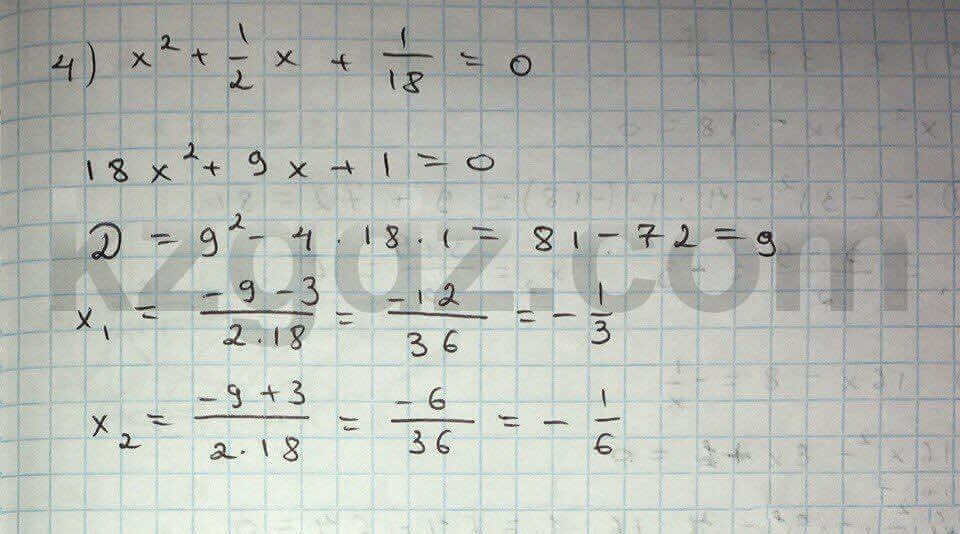 4) x² + 1/2 x + 1/18 = 0
18x² + 9x + 1 = 0
D = 9² - 4 · 18 · 1 = 81 - 72 = 9
kzgdz.com
x₁ = (-9 - 3)/(2 · 18) = -12/36 = -1/3
x₂ = (-9 + 3)/(2 · 18) = -6/36 = -1/6